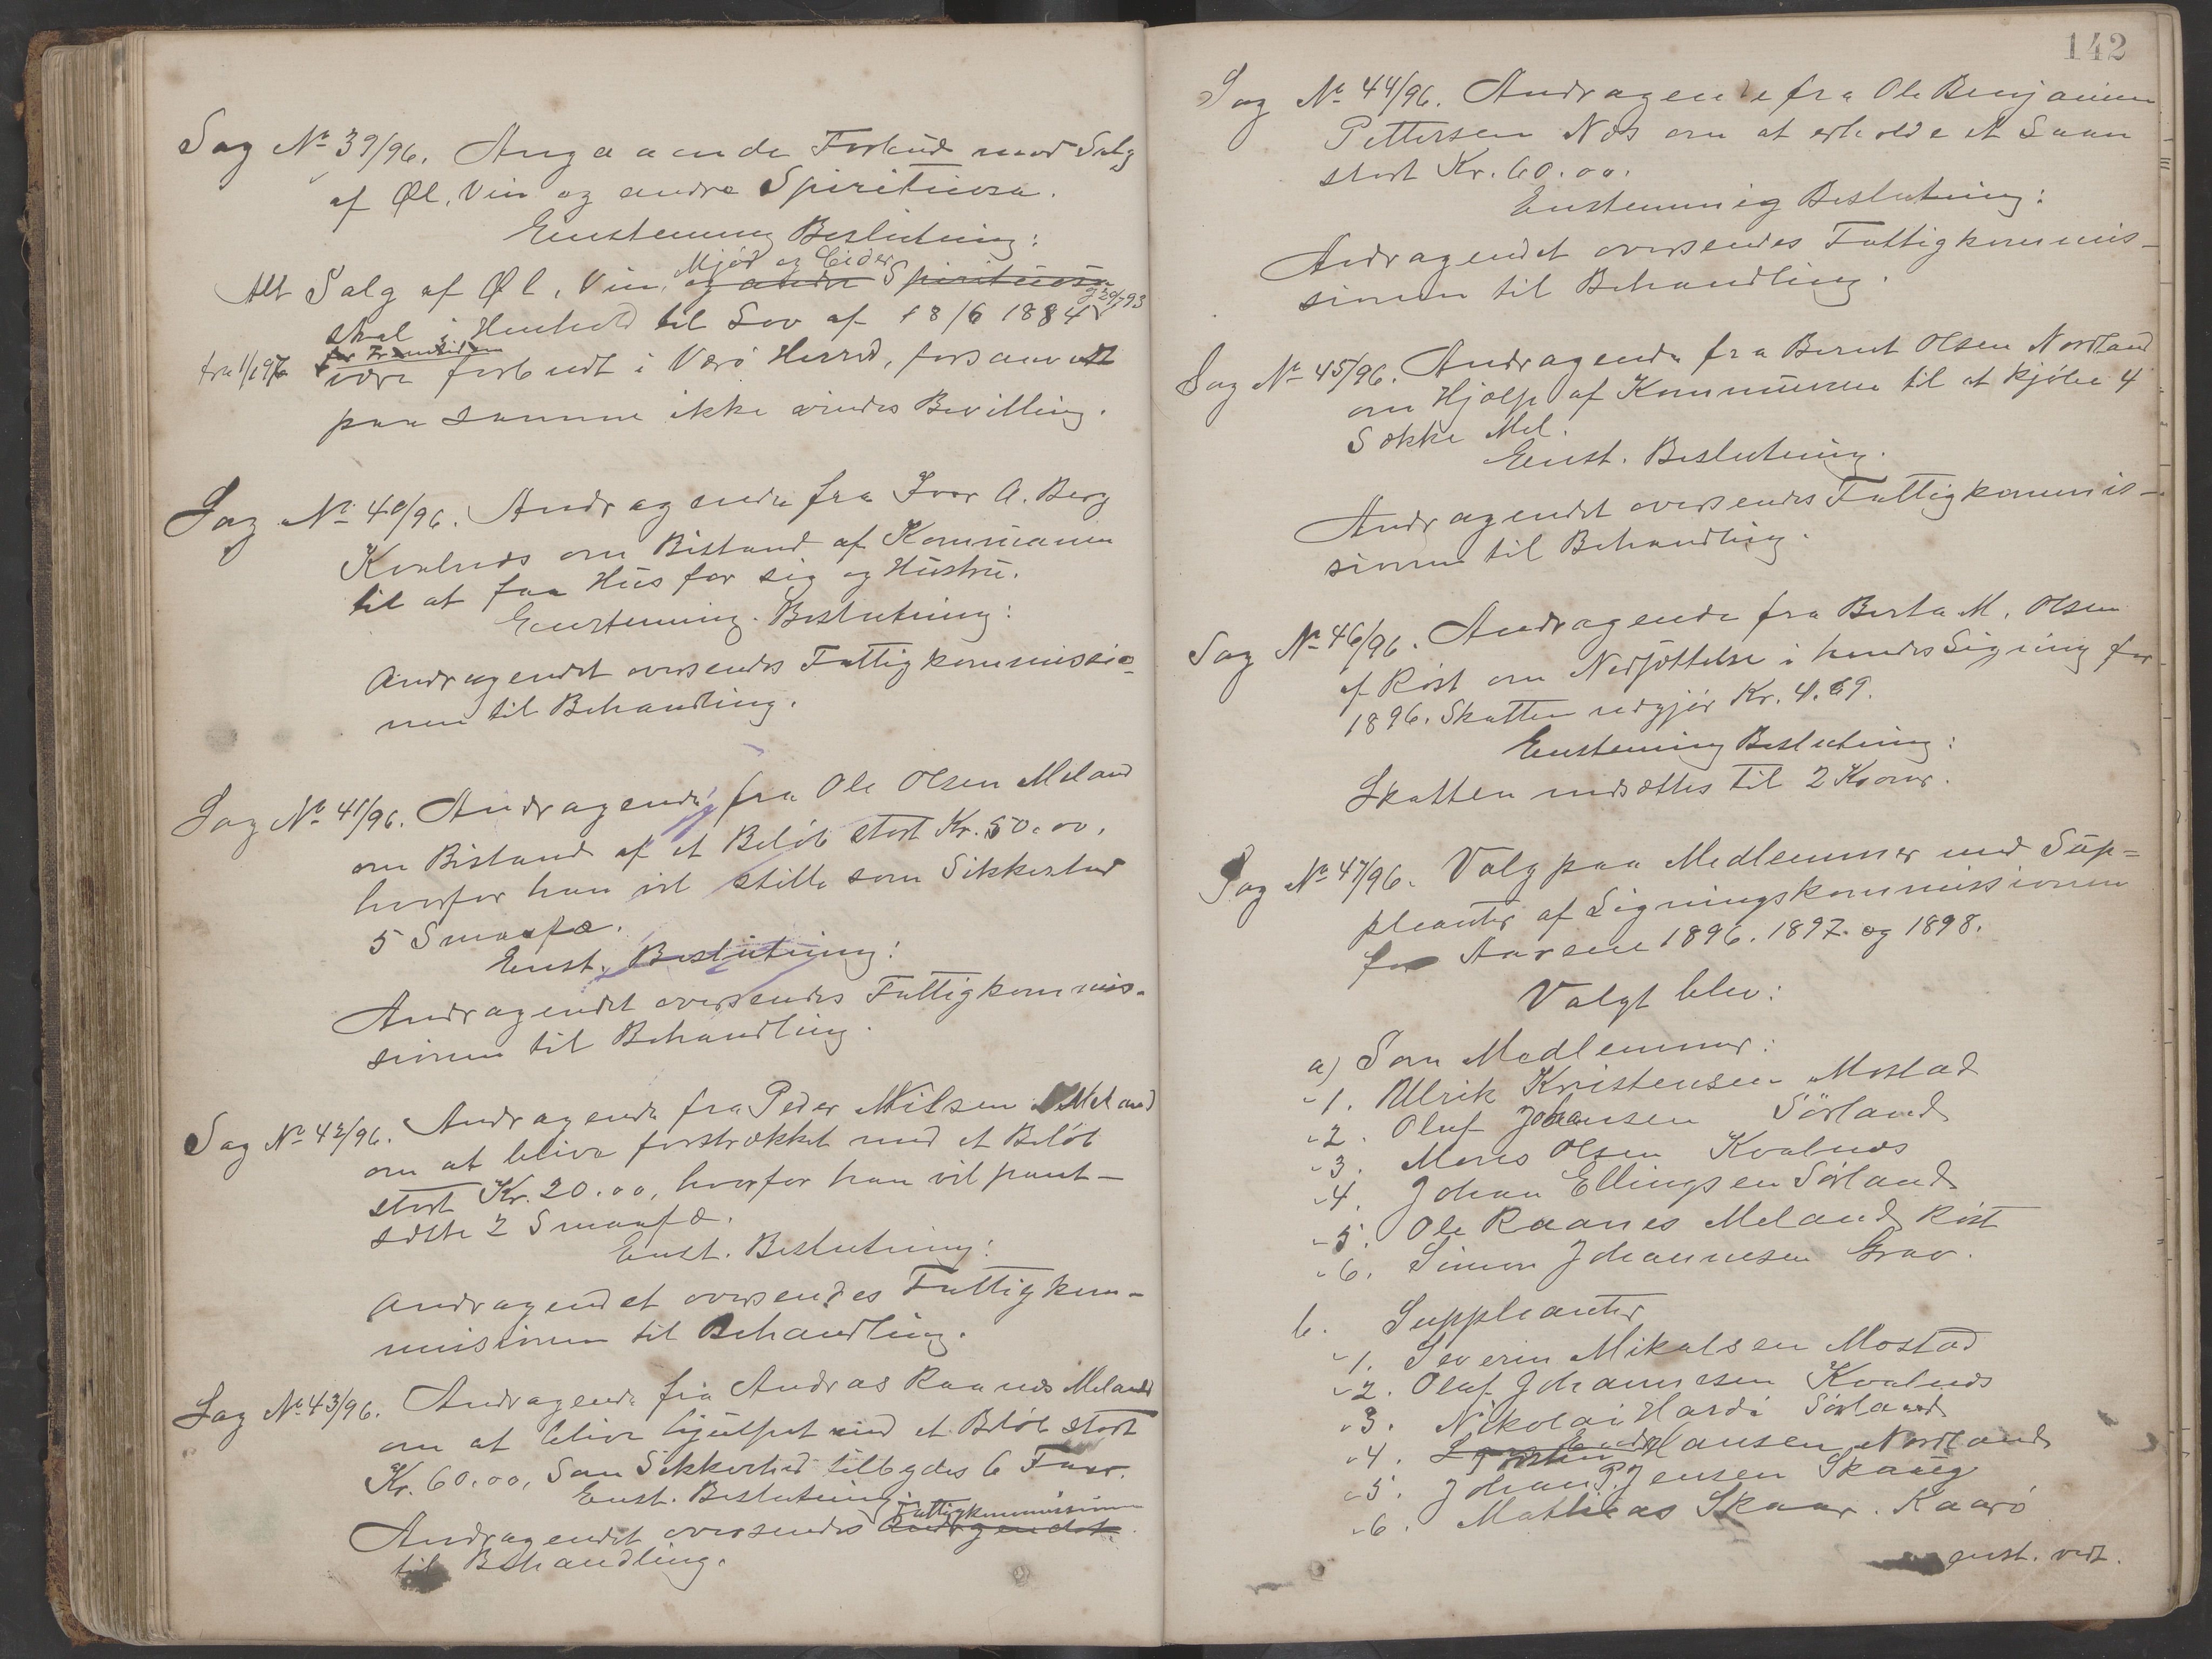 Sag No 39/96. Angaaende Forbud mod Salg
af Øl, Vin og andre Spirituosa.
Enstemmig Beslutning:
Mjød og Cider
Alt Salg af Øl, Vin, og andre Spirituosa
skal i Henhold til Lov af 18/6 1884
for Fremtiden
fra 1/1 97 være forbudt i Værø Herred, forsaavidt
paa samme ikke vindes Bevilling.
Sag No 40/96. Andragende fra Iver A. Berg
Kvalnæs om Bistand af Kommunen
til at faa Hus for sig og Hustru.
Enstemmig Beslutning:
Andragendet oversendes Fattigkommissio-
nen til Behandling.
Sag No 41/96. Andragende fra Ole Olsen Meland
om Bistand af et Beløb stort Kr. 50.00,
hvorfor han vil stille som Sikkerhed
5 Smaafæ.
Enst. Beslutning:
Andragendet oversendes Fattigkommis-
sionen til Behandling.
Sag No 42/96. Andragende fra Peder Nilsen Meland
om at blive forstrækket med et Beløb
stort Kr. 20.00, hvorfor han vil pant-
sætte 2 Smaafæ.
Enst. Beslutning:
Andragendet oversendes Fattigkom-
missionen til Behandling.
Sag No 43/96. Andragende fra Andreas Raanes Meland
om at blive hjulpet med et Beløb stort
Kr. 60.00, Som Sikkerhed tilbydes 6 Faar.
Enst. Beslutning:
Fattigkommissionen
Andragendet oversendes Andragendet
til Behandling.
142
Sag No 44/96. Andragende fra Ole Benjamin
Pettersen Næs om at erholde et Laan
stort Kr. 60.00.
Enstemmig Beslutning:
Andragendet oversendes Fattigkommis-
sionen til Behandling.
Sag No 45/96. Andragende fra Bernt Olsen Nordland
om Hjælp af Kommunen til at kjøbe 4
Sække Mel.
Enst. Beslutning.
Andragendet oversendes Fattigkommis-
sionen til Behandling.
Sag No 46/96. Andragende fra Berta M. Olsen
af Røst om Nedsættelse i hendes Ligning for
1896. Skatten udgjør Kr. 4.69.
Enstemmig Beslutning:
Skatten nedsættes til 2 Kroner.
Sag No 47/96. Valg paa Medlemmer med Sup-
pleanter af Ligningskommissionen
for Aarene 1896. 1897. og 1898.
Valgt blev:
a) Som Medlemmer:
1. Ulrik Kristensen Mostad
2. Oluf Johansen Sørland
3. Mons Olsen Kvalnæs
4. Johan Ellingsen Sørland
5. Ole Raanes Meland Røst
6. Simon Johannesen Grav.
b. Suppleanter
1. Severin Mikalsen Mostad
2. Oluf Johannesen Kvalnæs
3. Nikolai Hardi Sørland
4. Hansen Nordland
5. Johan P. Jensen Skaaeg
6. Mathias Skaar. Kaarø
enst. vedt.